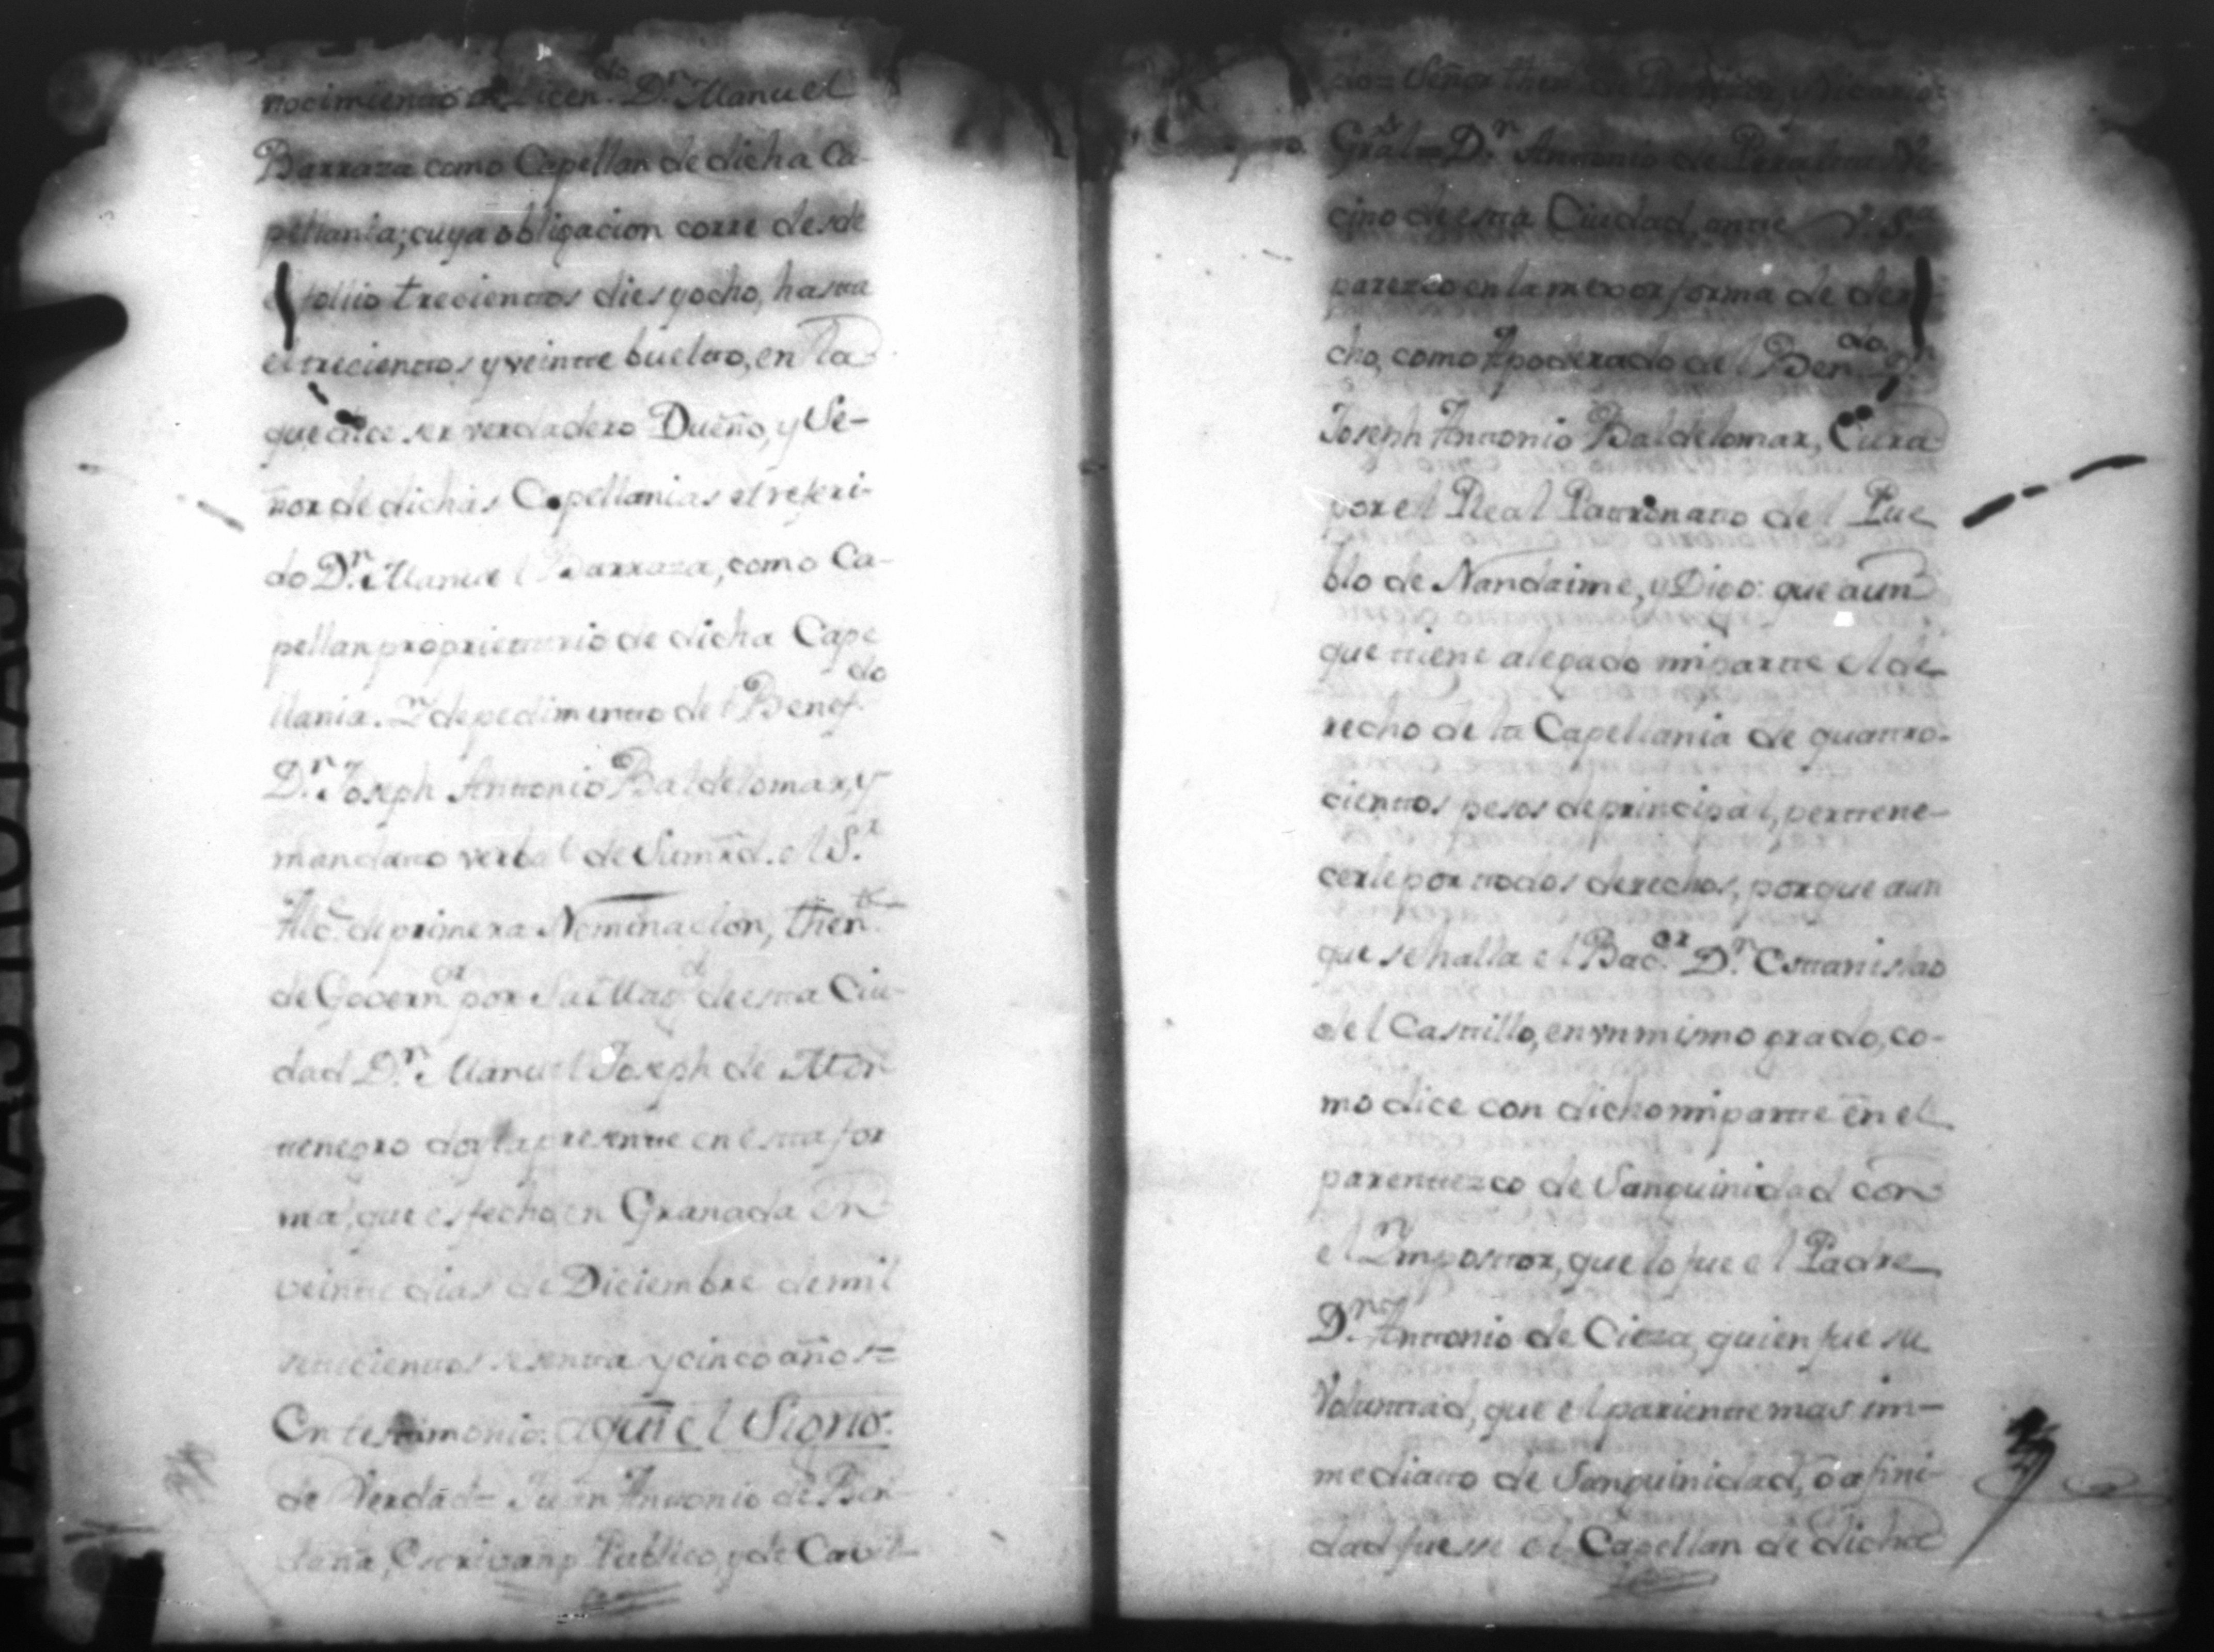 nocimiento de Licen.do D.n Manuel
Barraza como Capellan de dicha Ca-
pellania; cuya obligacion corre desde
el follio trecientos dies y ocho, hasta
el trecientos y veinte buelto, en la
que dice ser verdadero Dueño, y Se-
ñor de dichas Capellanias el referi-
do D.n Manuel Barraza, como Ca-
pellan proprietario de dicha Cape
llania. Y de pedimento del Benef.do
D.n Joseph Antonio Baldelomar, y
mandato verbal de Su mrd. el S.r
Alc.e de primera Nominacion, thien.te
de Govern.or por Sa Mag.d de esta Ciu-
dad D.n Manuel Joseph de Mon
tenegro doy la presente en esta for
ma, que es fecho en Granada en
veinte dias de Diciembre de mil
setecientos sesenta y cinco años=
En testimonio: aqui el Signo:
de Verdad= Juan Antonio de Ben-
daña, Escrivano Publico, y de Cavil-
do= Señor then.te de Provisor, y Vicario
Gral= D.n Antonio de Peralta Ve-
cino de esta Ciudad, ante V. S.a
parezco en la mexor forma de dere-
cho, como Apoderado de el Ben.do D.n
Joseph Antonio Baldelomar, Cura
por el Real Patronato de el Pue
blo de Nandaime, y Digo: que aun
que tiene alegado mi parte el de
recho de la Capellania de quatro-
cientos pesos de principal, pertene-
cerle por todos derechos, porque aun
que se halla el Bac.er D.n Estanislao
del Castillo, en vn mismo grado, co-
mo dice con dicho mi parte en el
parentezco de Sanguinidad con
el Ympositor, que lo fue el Padre
D.n Antonio de Cieza, quien fue su
Voluntad, que el pariente mas im-
mediato de Sanguinidad, o afini-
dad fuesse el Capellan de dicha